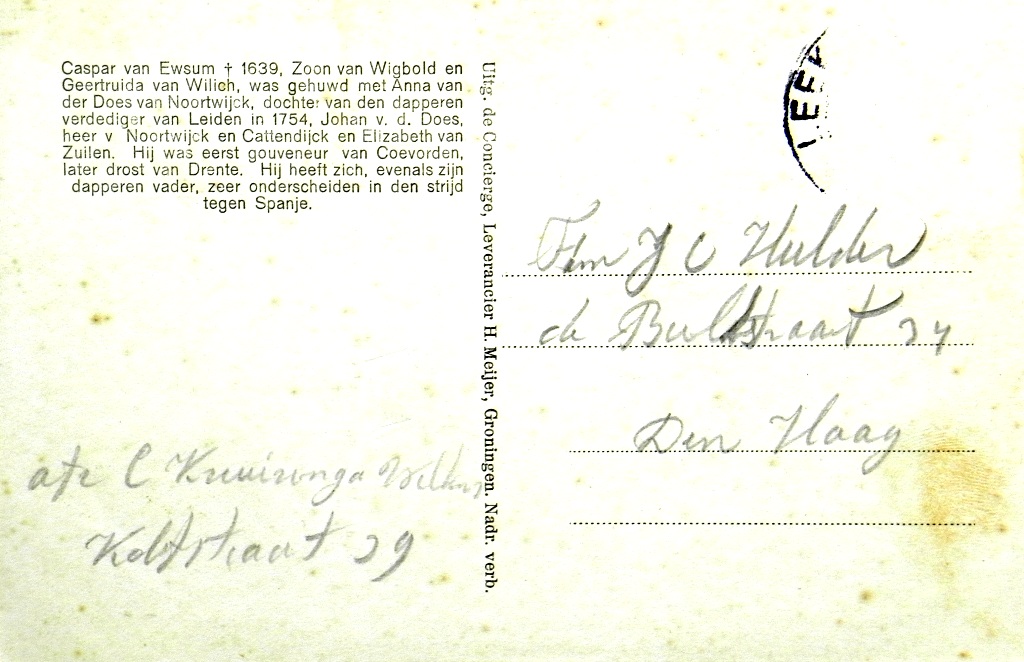 Caspar van Ewsum † 1639, Zoon van Wigbold en
Geertruida van Wilich, was gehuwd met Anna van
der Does van Noortwijck, dochter van den dapperen
verdediger van Leiden in 1754, Johan v. d. Does,
heer v Noortwijck en Cattendijck en Elizabeth van
Zuilen. Hij was eerst gouveneur van Coevorden,
later drost van Drente. Hij heeft zich, evenals zijn
dapperen vader, zeer onderscheiden in den strijd
tegen Spanje.
Uitg. de Concierge, Leverancier H. Meijer, Groningen. Nadr. verb.
Fam J C Hulder
de
Den Haag
afz C Kruizenga
29